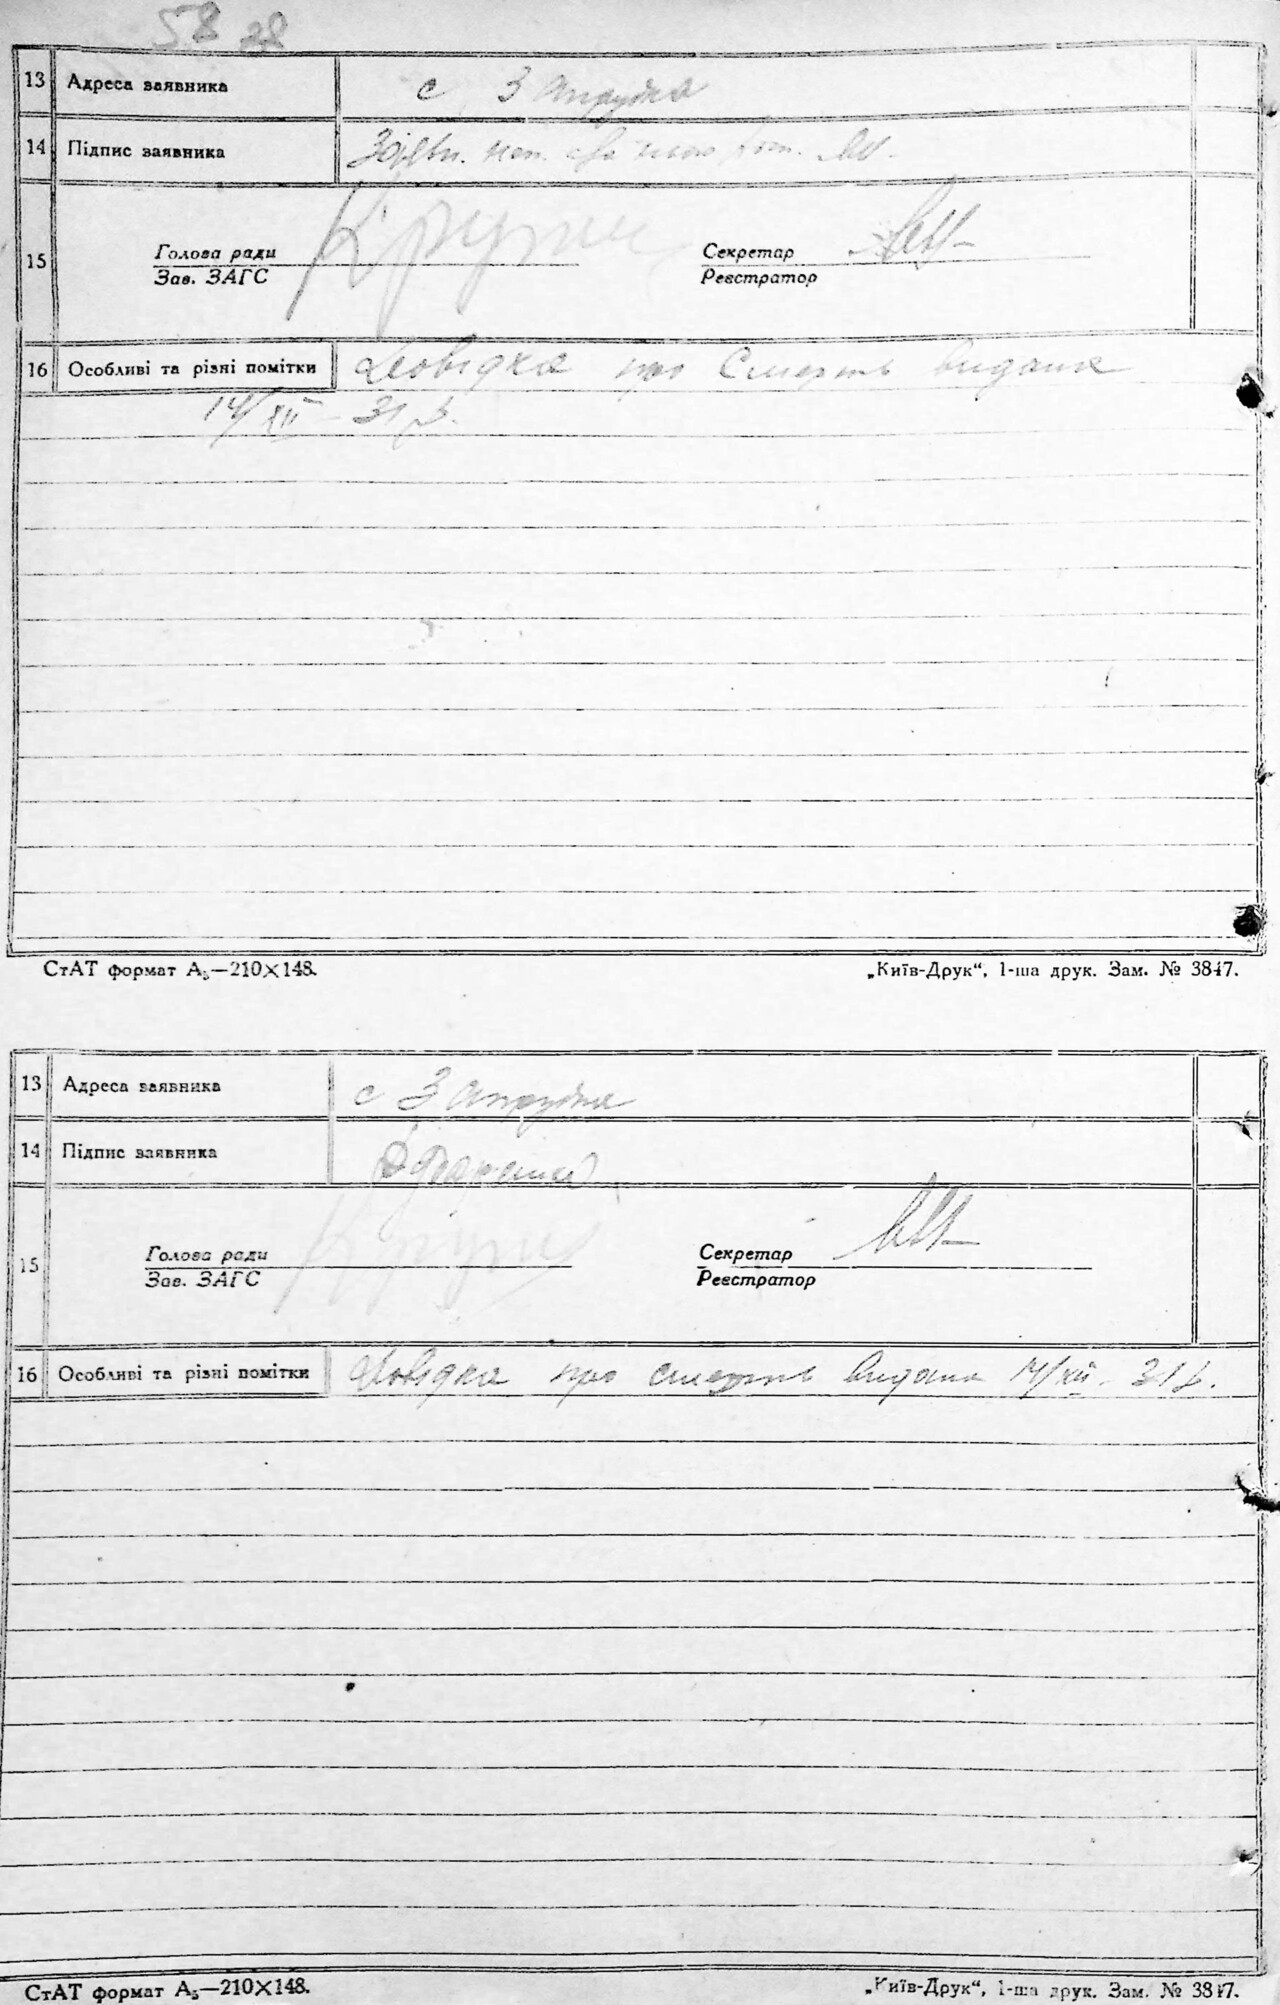 58 28
13 Адреса заявника с Запрудка
14 Підпис заявника
Голова ради Секретар
15
Зав. ЗАГС Реєстратор
16 Особливі та різні помітки Довідка про Смерть видана
14/XII – 31 р.
СтАТ формат А₅—210×148. „Київ-Друк“, 1-ша друк. Зам. № 3847.
13 Адреса заявника с Запрудка
14 Підпис заявника
Голова ради Секретар
15
Зав. ЗАГС Реєстратор
16 Особливі та різні помітки Довідка про смерть видана 14/XII – 31 р.
СтАТ формат А₅—210×148. „Київ-Друк“, 1-ша друк. Зам. № 3847.